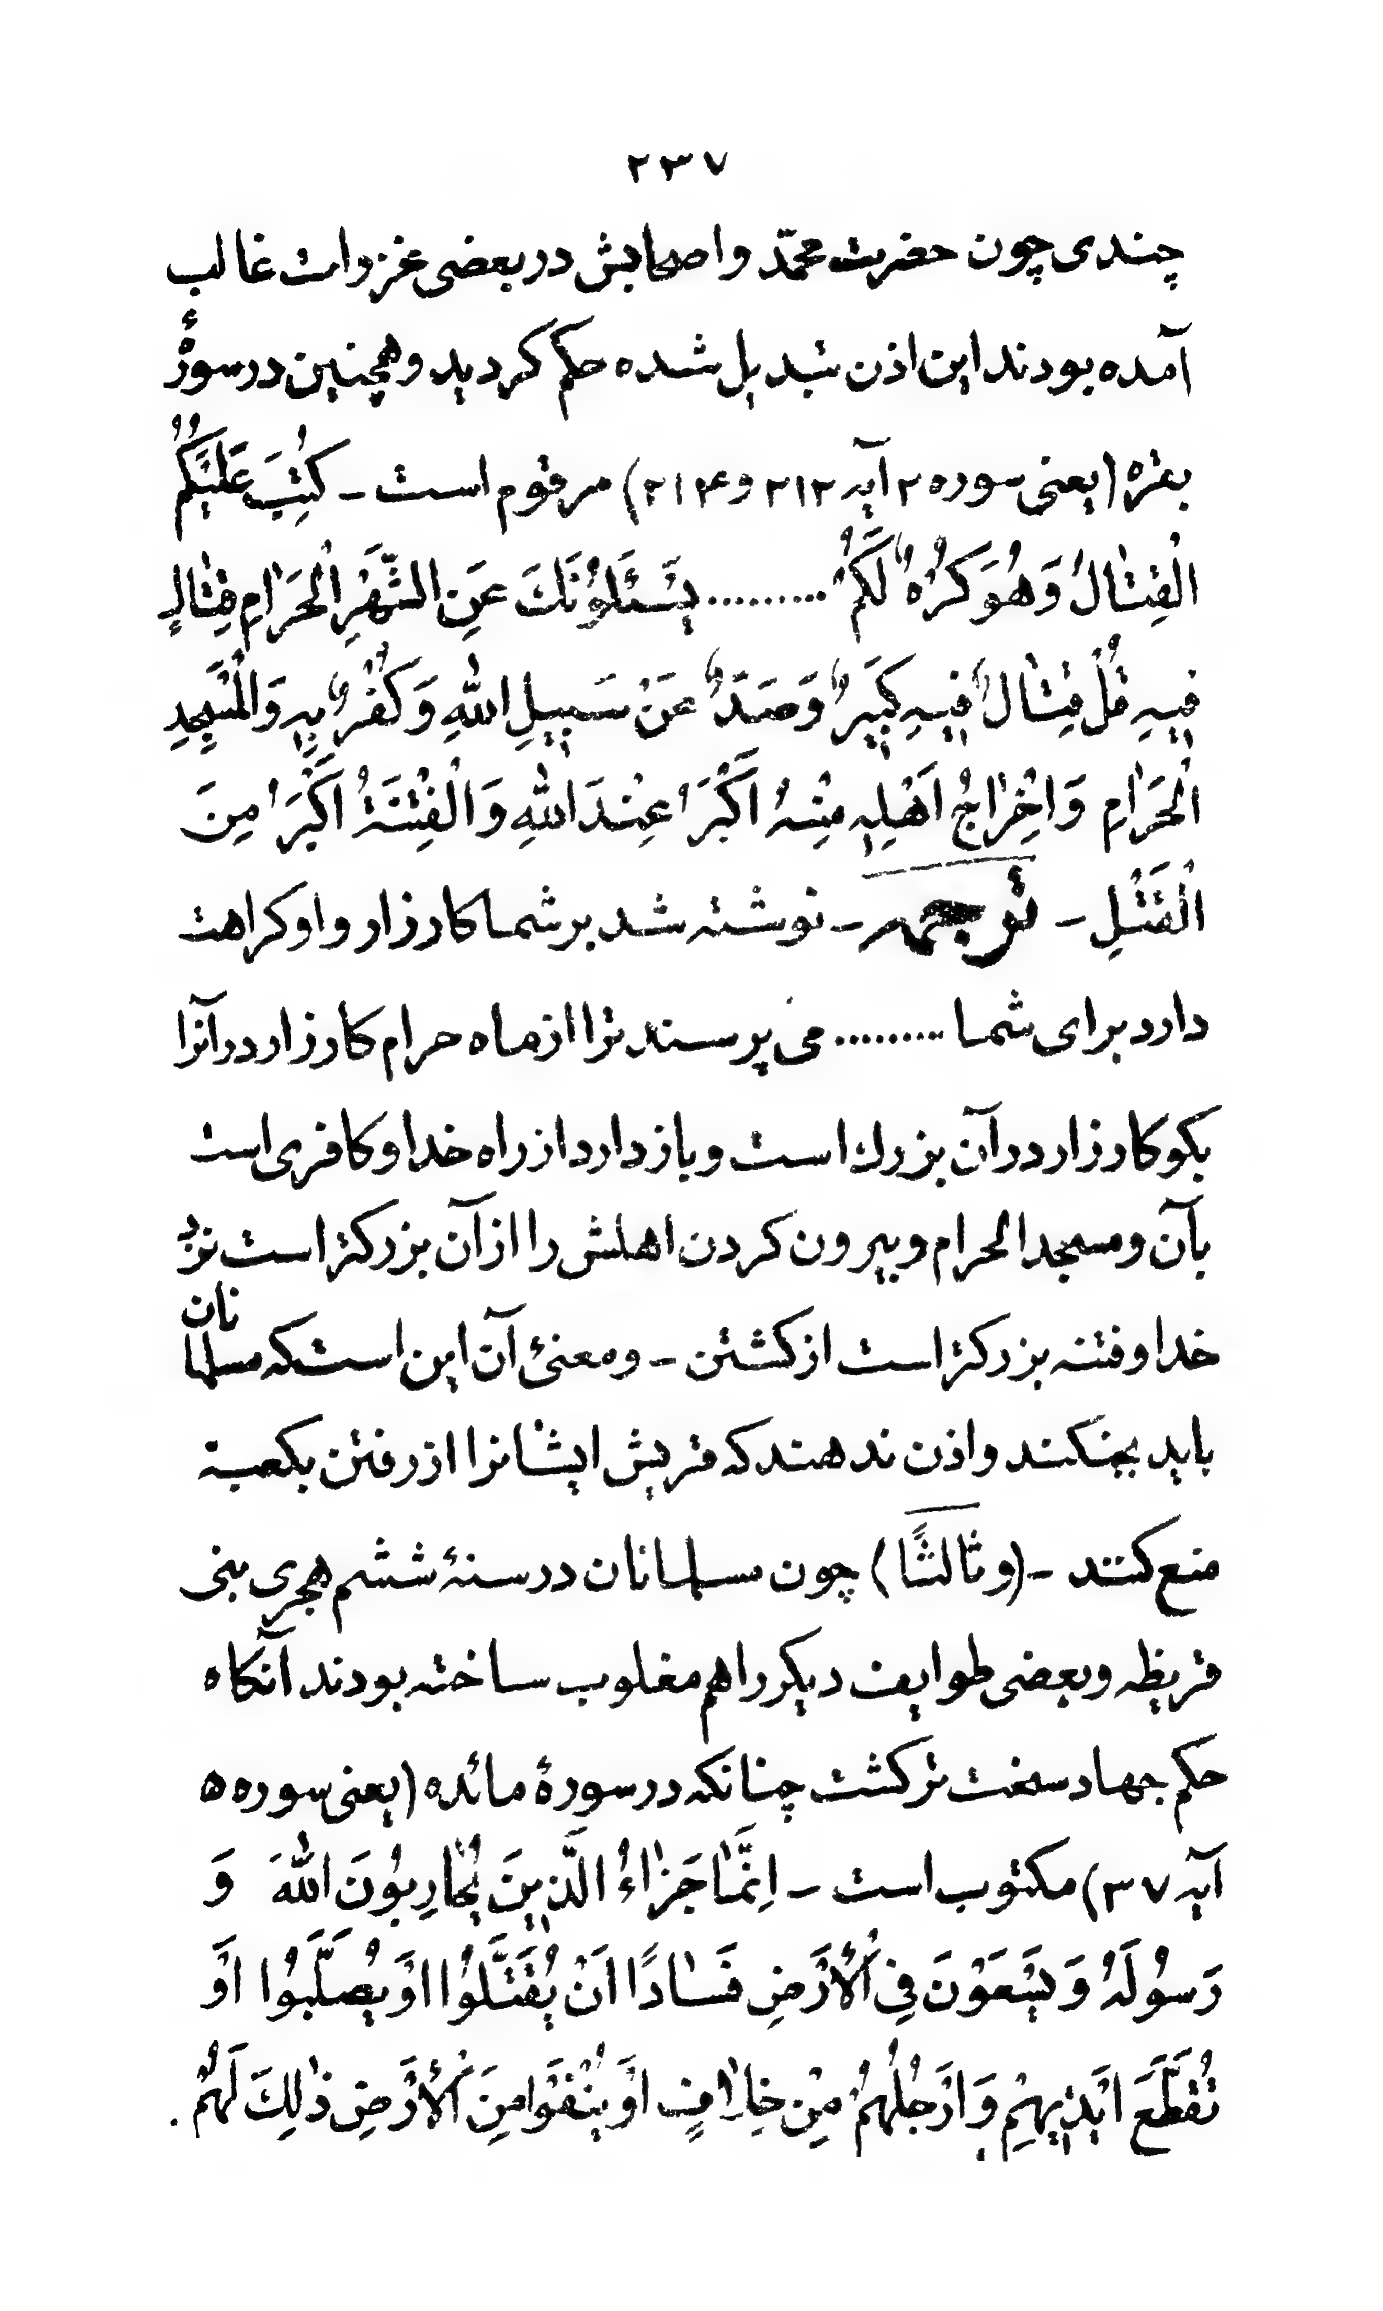 ۲۳۷
چندی چون حضرت محمّد و اصحابش در بعضی غزوات غالب
آمده بودند این اذن تبدیل شده حکم کردید و همچنین در سورهٔ
بقره (یعنی سوره ۲ آیه ۲۱۲ و ۲۱۴) مرقوم است - کُتِبَ عَلَیْکُمُ
الْقِتٰالُ وَهُوَ کُرْهٌ لَکُمْ ......... یَسْئَلُونَکَ عَنِ الشَّهْرِ الْحَرٰامِ قِتٰالٍ
فِیهِ قُلْ قِتٰالٌ فِیهِ کَبِیرٌ وَصَدٌّ عَنْ سَبِیلِ اللّٰهِ وَکُفْرٌ بِهِ وَالْمَسْجِدِ
الْحَرٰامِ وَاِخْرٰاجُ اَهْلِهِ مِنْهُ اَکْبَرُ عِنْدَ اللّٰهِ وَالْفِتْنَةُ اَکْبَرُ مِنَ
الْقَتْلِ - ترجمه - نوشته شد بر شما کارزار و او کراهت
دارد برای شما ......... می پرسند ترا از ماه حرام کارزار در آنرا
بکو کارزار در آن بزرك است و باز دارد از راه خدا و کافری است
بآن و مسجد الحرام و بیرون کردن اهلش را از آن بزرکتر است نزد
خدا و فتنه بزرکتر است از کشتن - و معنیٔ آن این است که مسلمانان
باید بجنکند و اذن ندهند که قریش ایشانرا از رفتن بکعبة
منع کنند - (و ثالثًا) چون مسلمانان در سنهٔ ششم هجری بنی
قریظه و بعضی طوایف دیکر را هم مغلوب ساخته بودند آنکاه
حکم جهاد سخت تر کشت چنانکه در سورهٔ مائده (یعنی سوره ۵
آیه ۳۷) مکتوب است - اِنَّمٰا جَزٰاءُ الَّذِینَ یُحٰارِبُونَ اللّٰهَ وَ
رَسُولَهُ وَیَسْعَوْنَ فِی الْأَرْضِ فَسٰادًا اَنْ یُقَتَّلُوا اَوْ یُصَلَّبُوا اَوْ
تُقَطَّعَ اَیْدِیهِمْ وَاَرْجُلُهُمْ مِنْ خِلٰافٍ اَوْ یُنْفَوْا مِنَ الْأَرْضِ ذٰلِكَ لَهُمْ